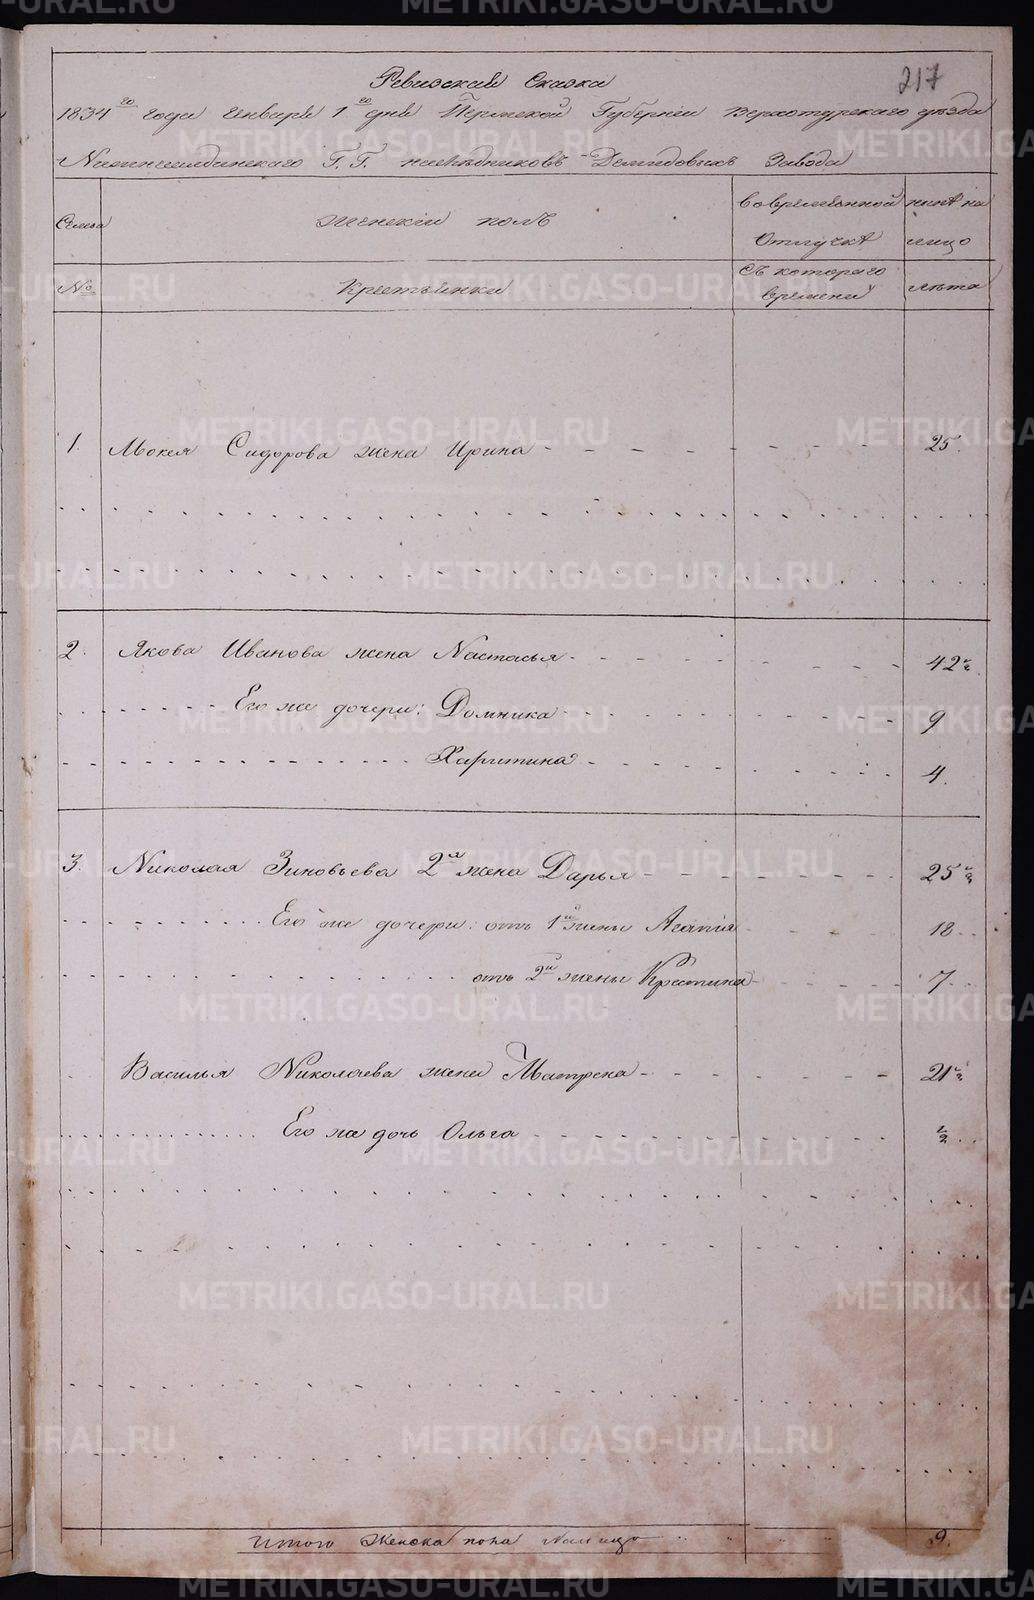 217
Ревизская Сказка
1834го года Генваря 1го дня Пермской Губернiи Верхотурскаго уѣзда
Г. Г. наслѣдниковъ Демидовыхъ Завода
Семьи
Женскiй полъ
Во временной отлучкѣ
нынѣ на лицо
№
Крестьянки
Съ котораго времени
лѣта
1. Мокея Сидорова жена Ирина 25.
2. Якова Иванова жена Настасья 42½
Его же дочери: Домника 9
Харитина 4.
3. Николая Зиновьева 2я жена Дарья 25½
Его же дочери: отъ 1й жены Агапiя 18
отъ 2й жены Крестина 7
Василья Николаева жена Матрена 21½
Его же дочь Ольга ½
Итого Женска пола на лицо 9.
METRIKI.GASO-URAL.RU